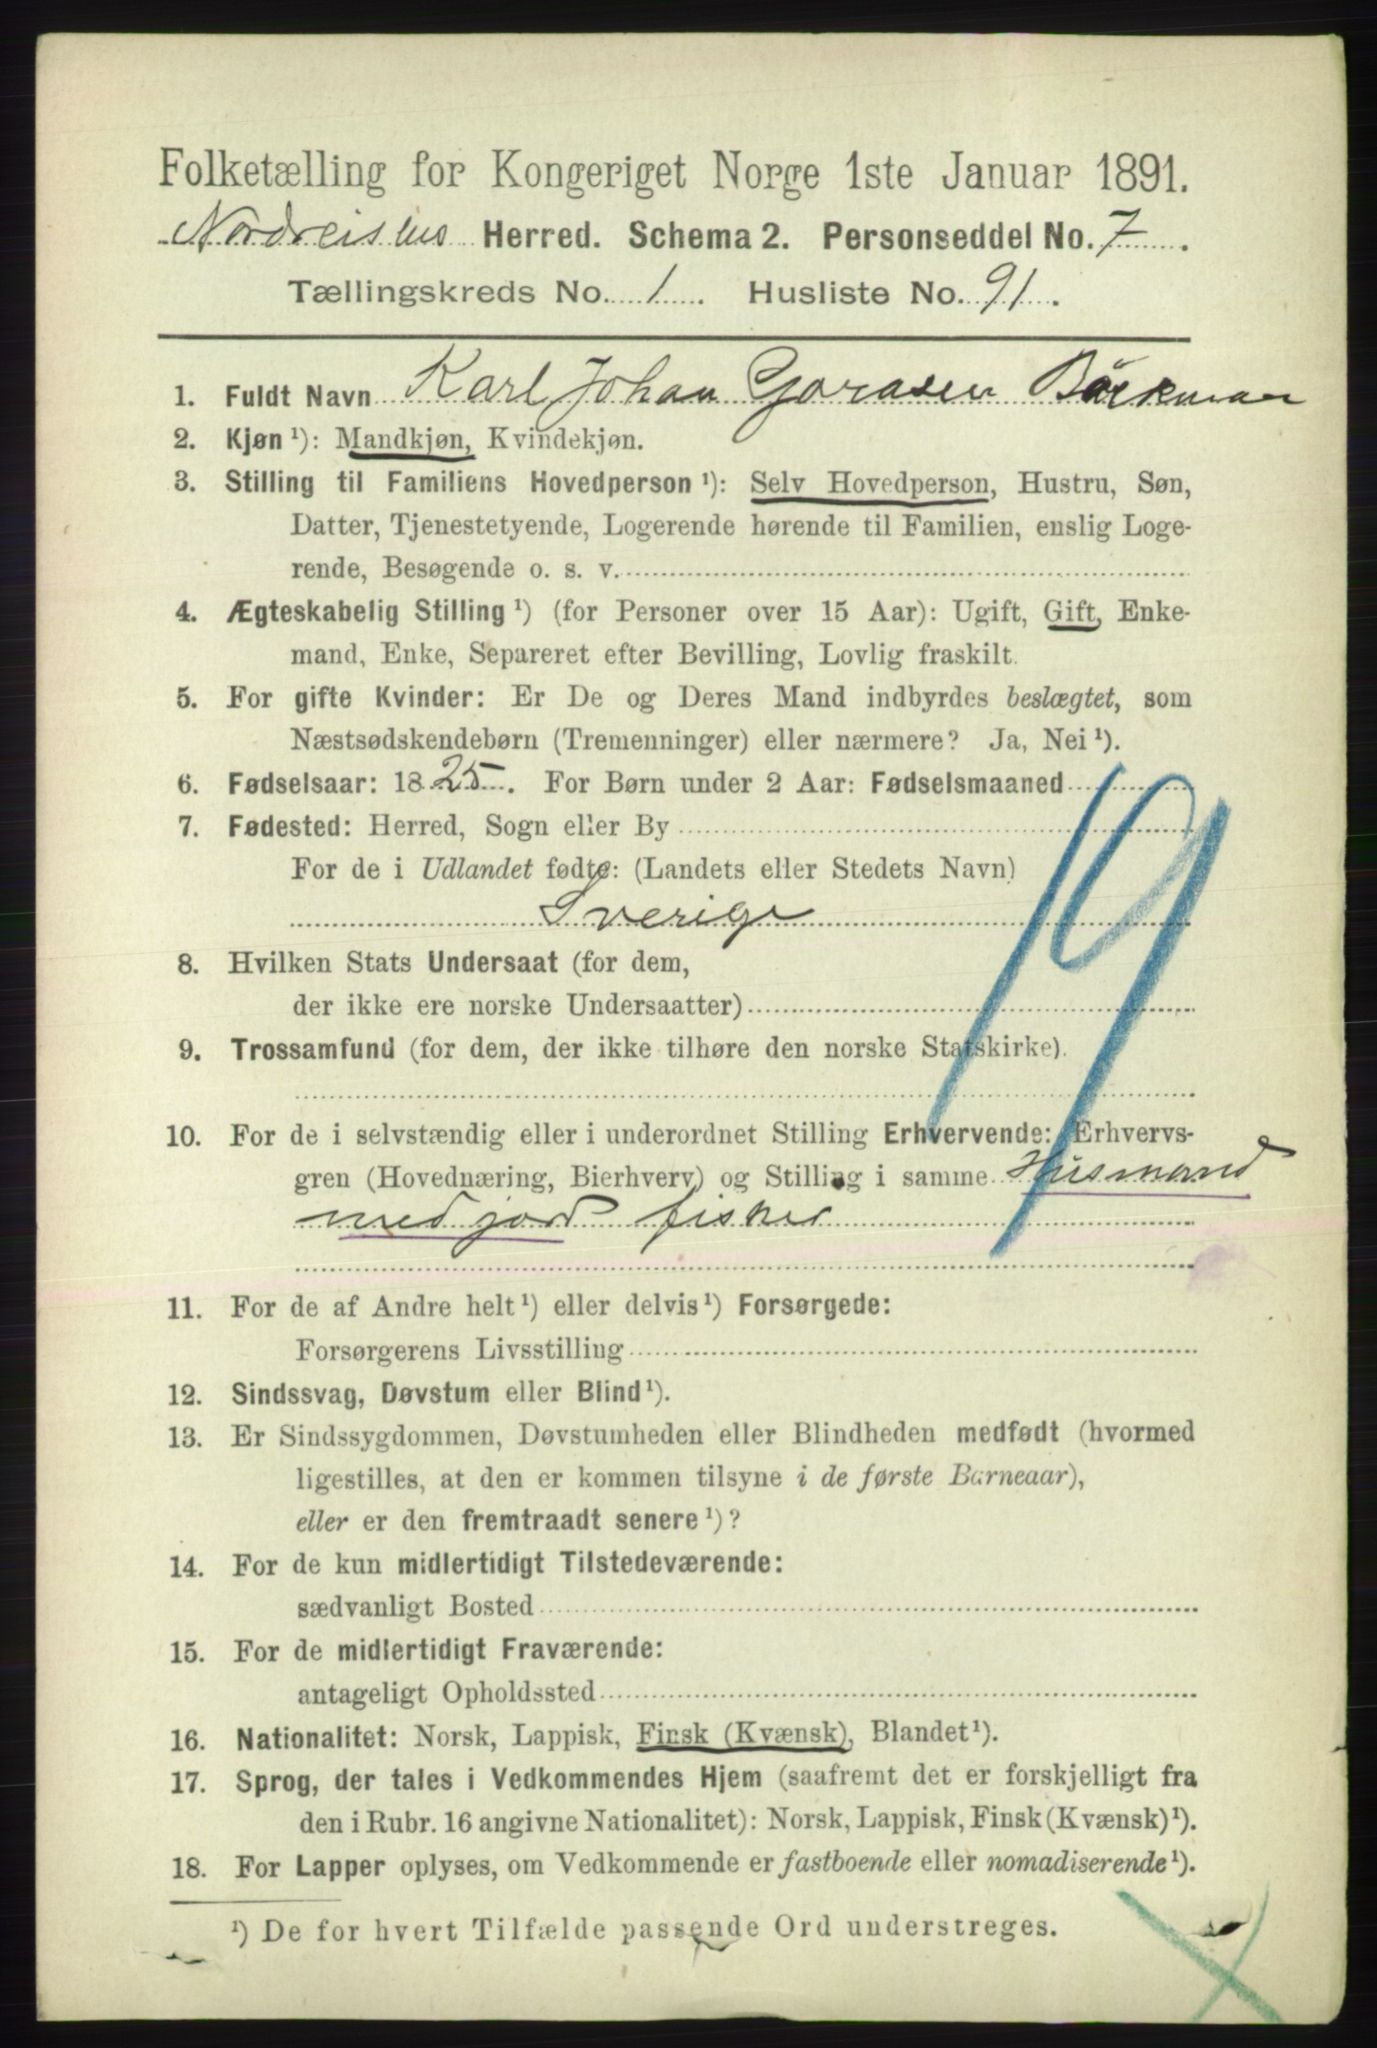 Folketælling for Kongeriget Norge 1ste Januar 1891.
Herred. Schema 2. Personseddel No. 7
Tællingskreds No. 1 Husliste No. 91
1. Fuldt Navn Karl Johan
2. Kjøn ¹): Mandkjøn, Kvindekjøn.
3. Stilling til Familiens Hovedperson ¹): Selv Hovedperson, Hustru, Søn,
Datter, Tjenestetyende, Logerende hørende til Familien, enslig Loge-
rende, Besøgende o. s. v.
4. Ægteskabelig Stilling ¹) (for Personer over 15 Aar): Ugift, Gift, Enke-
mand, Enke, Separeret efter Bevilling, Lovlig fraskilt.
5. For gifte Kvinder: Er De og Deres Mand indbyrdes beslægtet, som
Næstsødskendebørn (Tremenninger) eller nærmere? Ja, Nei ¹).
6. Fødselsaar: 1825. For Børn under 2 Aar: Fødselsmaaned
7. Fødested: Herred, Sogn eller By
For de i Udlandet fødte: (Landets eller Stedets Navn)
Sverige
8. Hvilken Stats Undersaat (for dem,
der ikke ere norske Undersaatter)
9. Trossamfund (for dem, der ikke tilhøre den norske Statskirke).
10. For de i selvstændig eller i underordnet Stilling Erhvervende: Erhvervs-
gren (Hovednæring, Bierhverv) og Stilling i samme Husmand
med jord fisker
19
11. For de af Andre helt ¹) eller delvis ¹) Forsørgede:
Forsørgerens Livsstilling
12. Sindssvag, Døvstum eller Blind ¹).
13. Er Sindssygdommen, Døvstumheden eller Blindheden medfødt (hvormed
ligestilles, at den er kommen tilsyne i de første Barneaar),
eller er den fremtraadt senere ¹)?
14. For de kun midlertidigt Tilstedeværende:
sædvanligt Bosted
15. For de midlertidigt Fraværende:
antageligt Opholdssted
16. Nationalitet: Norsk, Lappisk, Finsk (Kvænsk), Blandet ¹).
17. Sprog, der tales i Vedkommendes Hjem (saafremt det er forskjelligt fra
den i Rubr. 16 angivne Nationalitet): Norsk, Lappisk, Finsk (Kvænsk) ¹).
18. For Lapper oplyses, om Vedkommende er fastboende eller nomadiserende ¹).
¹) De for hvert Tilfælde passende Ord understreges.